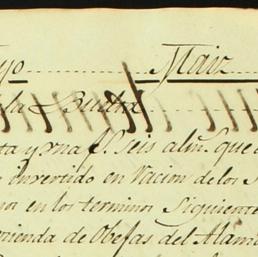 yo Maiz
la Buelta
ta y una f.s seis alm.s que
invertido en Racion de los
nos en los terminos Siguiente
mienda de Obejas del Alam